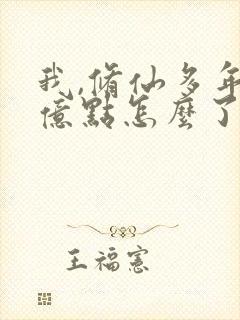 我,脩仙多年
億點怎麼了
王福憲